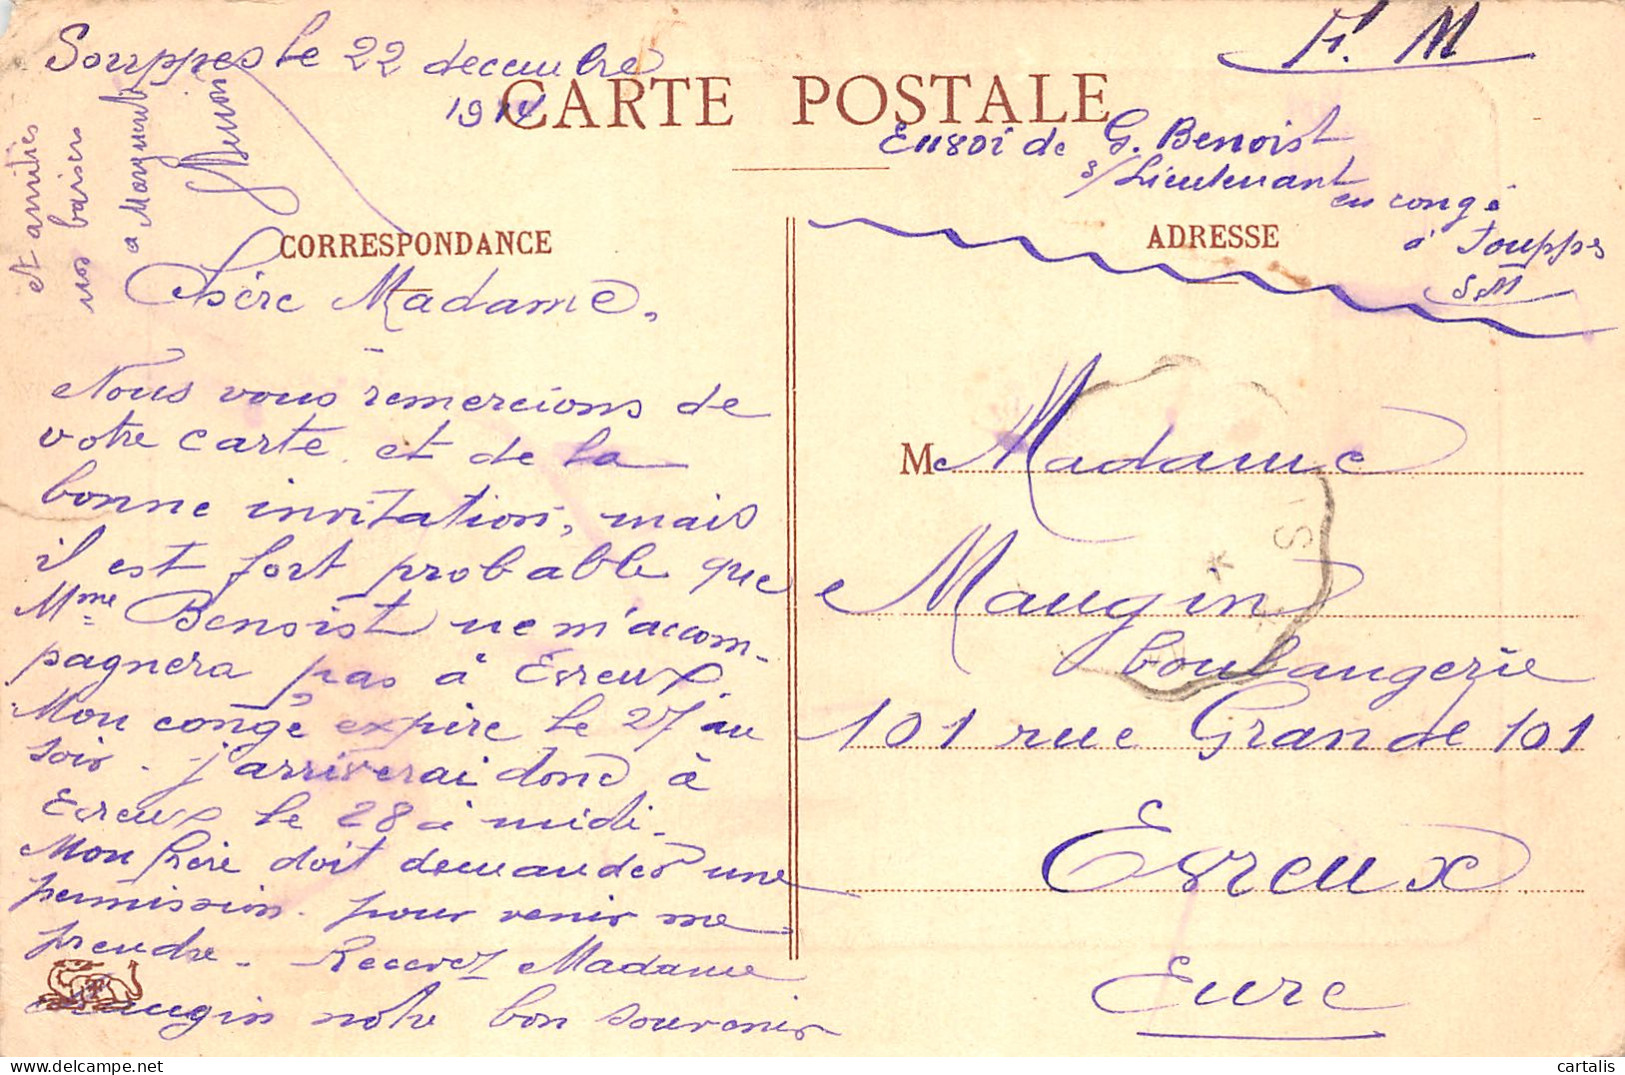 Souppes le 22 decembre
1914
F. M
CARTE POSTALE
Envoi de G. Benoist
s/Lieutenant
en congé
à Souppes
S.M
CORRESPONDANCE
ADRESSE
Chère Madame,
Nous vous remercions de
votre carte et de la
bonne invitation, mais
il est fort probable que
Mme Benoist ne m'accom-
pagnera pas à Evreux.
Mon congé expire le 27 au
soir. j'arriverai donc à
Evreux le 28 à midi.
Mon frère doit demander une
permission pour venir me
prendre. Recevez Madame
Maugin notre bon souvenir
et amitiés
nos baisers
a Marguerite
Benoist
Me Madame
Maugin
boulangerie
101 rue Grande 101
Evreux
Eure
cartalis